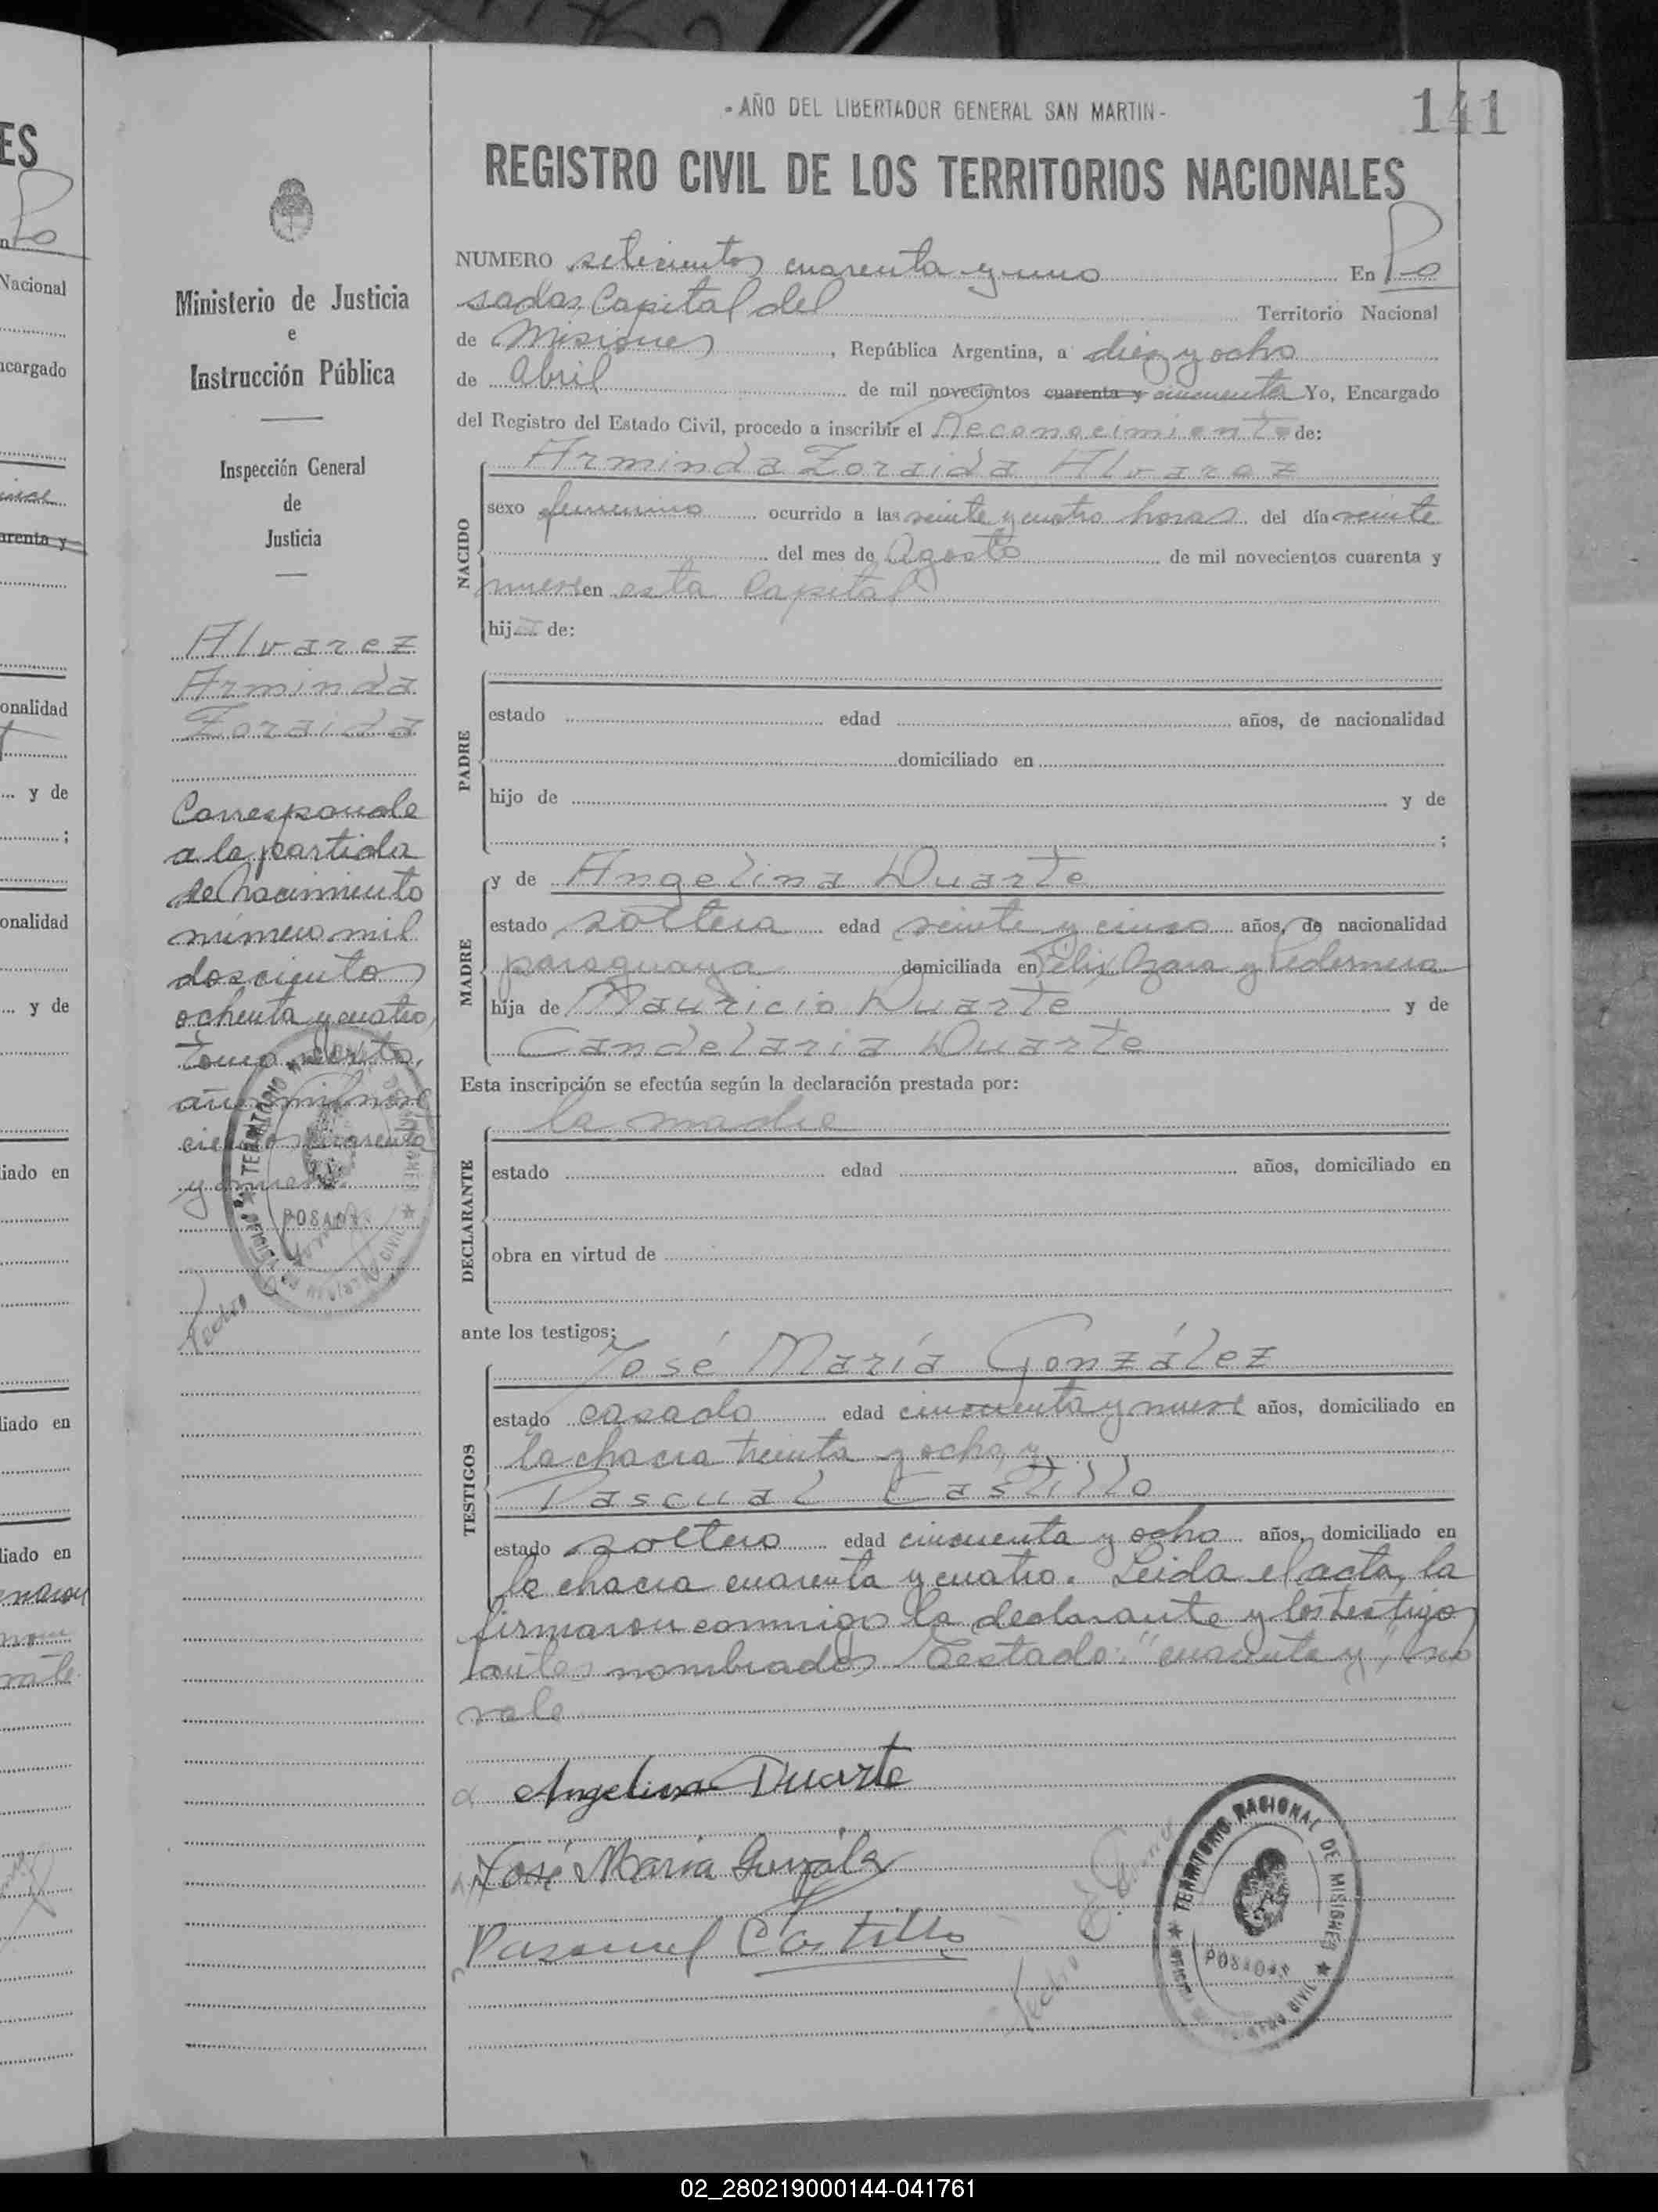 - AÑO DEL LIBERTADOR GENERAL SAN MARTIN -
141
REGISTRO CIVIL DE LOS TERRITORIOS NACIONALES
NUMERO setecientos cuarenta y uno En Po
sadas, Capital del Territorio Nacional
de Misiones, República Argentina, a diez y ocho
de Abril de mil novecientos cuarenta y cincuenta Yo, Encargado
del Registro del Estado Civil, procedo a inscribir el Reconocimiento de:
Arminda Zoraida Alvarez
NACIDO
sexo femenino ocurrido a las veinte y cuatro horas del día veinte
del mes de Agosto de mil novecientos cuarenta y
nueve en esta Capital
hija de:
PADRE
estado edad años, de nacionalidad
domiciliado en
hijo de y de
;
MADRE
y de Angelina Duarte
estado soltera edad veinte y cinco años, de nacionalidad
paraguaya domiciliada en Felix Azara y Pedernera
hija de Mauricio Duarte y de
Candelaria Duarte
Esta inscripción se efectúa según la declaración prestada por:
DECLARANTE
la madre
estado edad años, domiciliado en
obra en virtud de
ante los testigos:
TESTIGOS
José María González
estado casado edad cincuenta y nueve años, domiciliado en
la chacra treinta y ocho, y
Pascual Castillo
estado soltero edad cincuenta y ocho años, domiciliado en
la chacra cuarenta y cuatro. Leida el acta, la
firmaron conmigo la declarante y los testigos
antes nombrados. Testado: "cuarenta y", no
vale
Angelina Duarte
José María González
Pascual Castillo
TERRITORIO NACIONAL DE MISIONES
POSADAS
Ministerio de Justicia
e
Instrucción Pública
Inspección General
de
Justicia
Alvarez
Arminda
Zoraida
Corresponde
a la partida
de Nacimiento
número mil
doscientos
ochenta y cuatro,
tomo
año mil nove
cientos cuarenta
y nueve.
POSADAS
ES
Po
Nacional
ncargado
arenta y
onalidad
... y de
;
onalidad
... y de
liado en
liado en
liado en
02_280219000144-041761